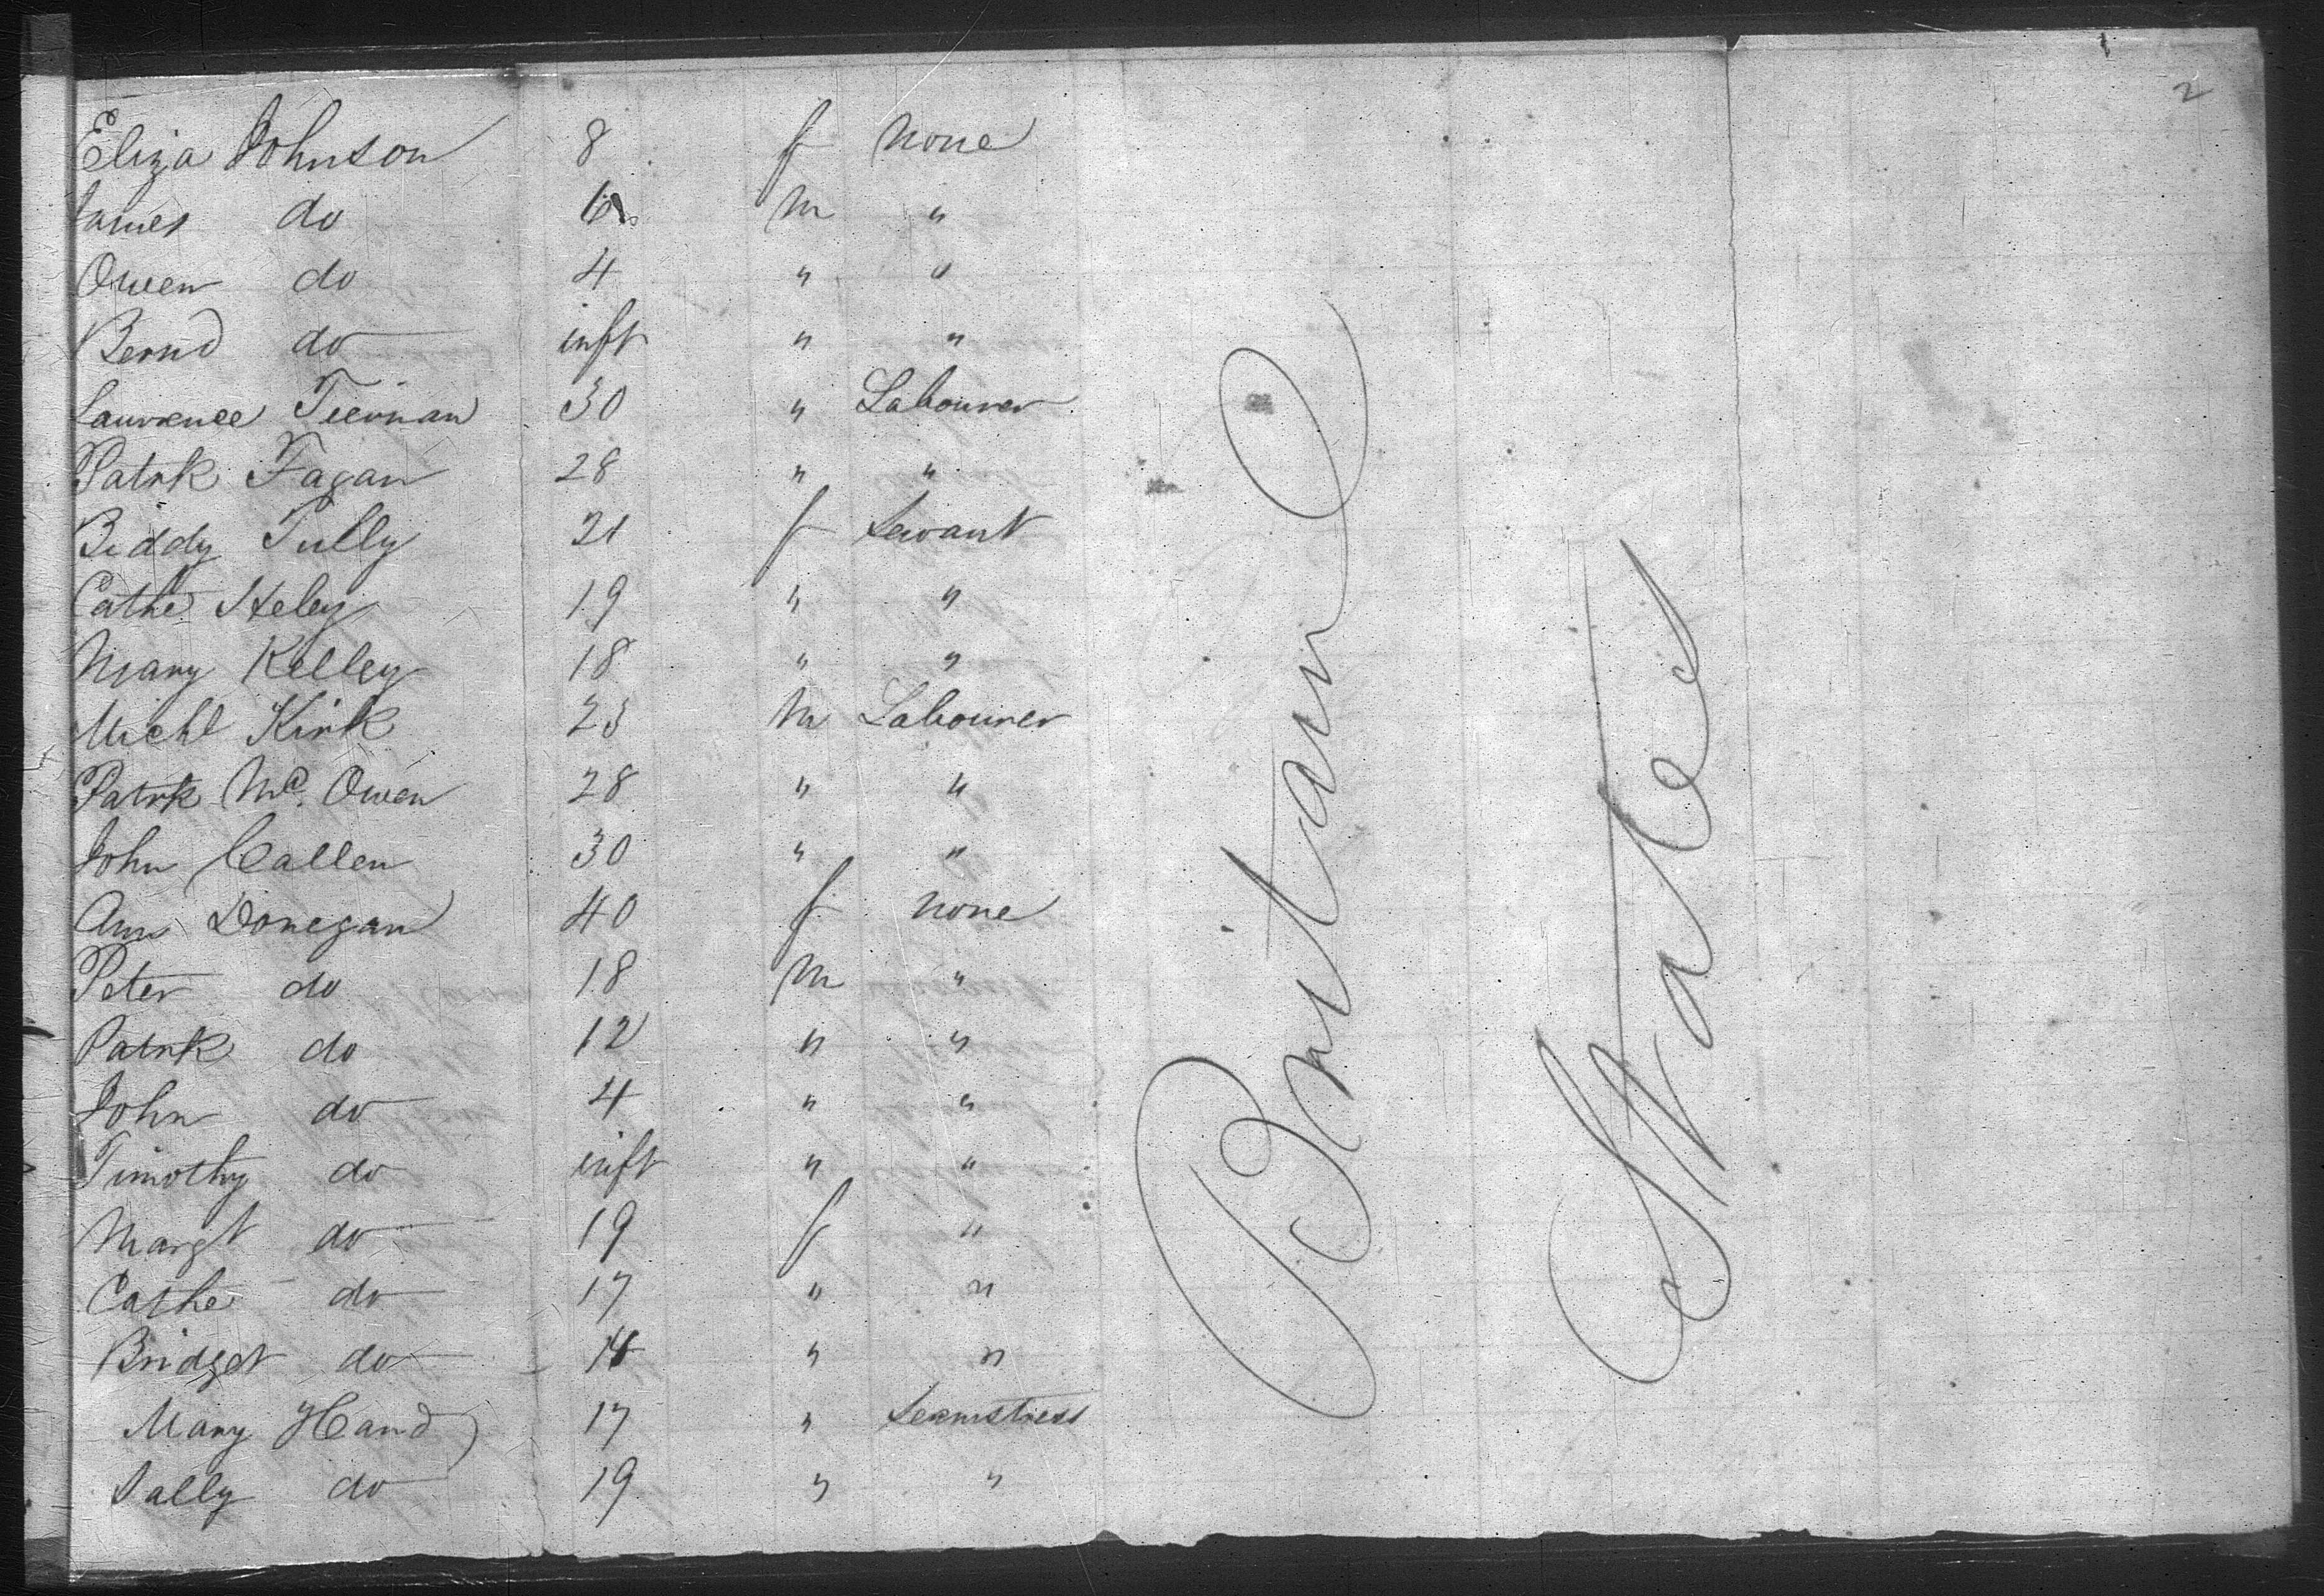 2
Eliza Johnson 8 f none
James do 6 m "
Owen do 4 " "
Bernd do inft " "
Lawrence Tiernan 30 " Labourer
Patrk Fagan 28 " "
Biddy Tully 21 f Servant
Cathe Heley 19 " "
Mary Kelley 18 " "
Michl Kirk 23 m Labourer
Patrk Mc. Owen 28 " "
John Callen 30 " "
Ann Donegan 40 f none
Peter do 18 m "
Patrk do 12 " "
John do 4 " "
Timothy do inft " "
Margt do 19 f "
Cathe do 17 " "
Bridget do 14 " "
Mary Hand 17 " Seamstress
Sally do 19 " "
Britain
States